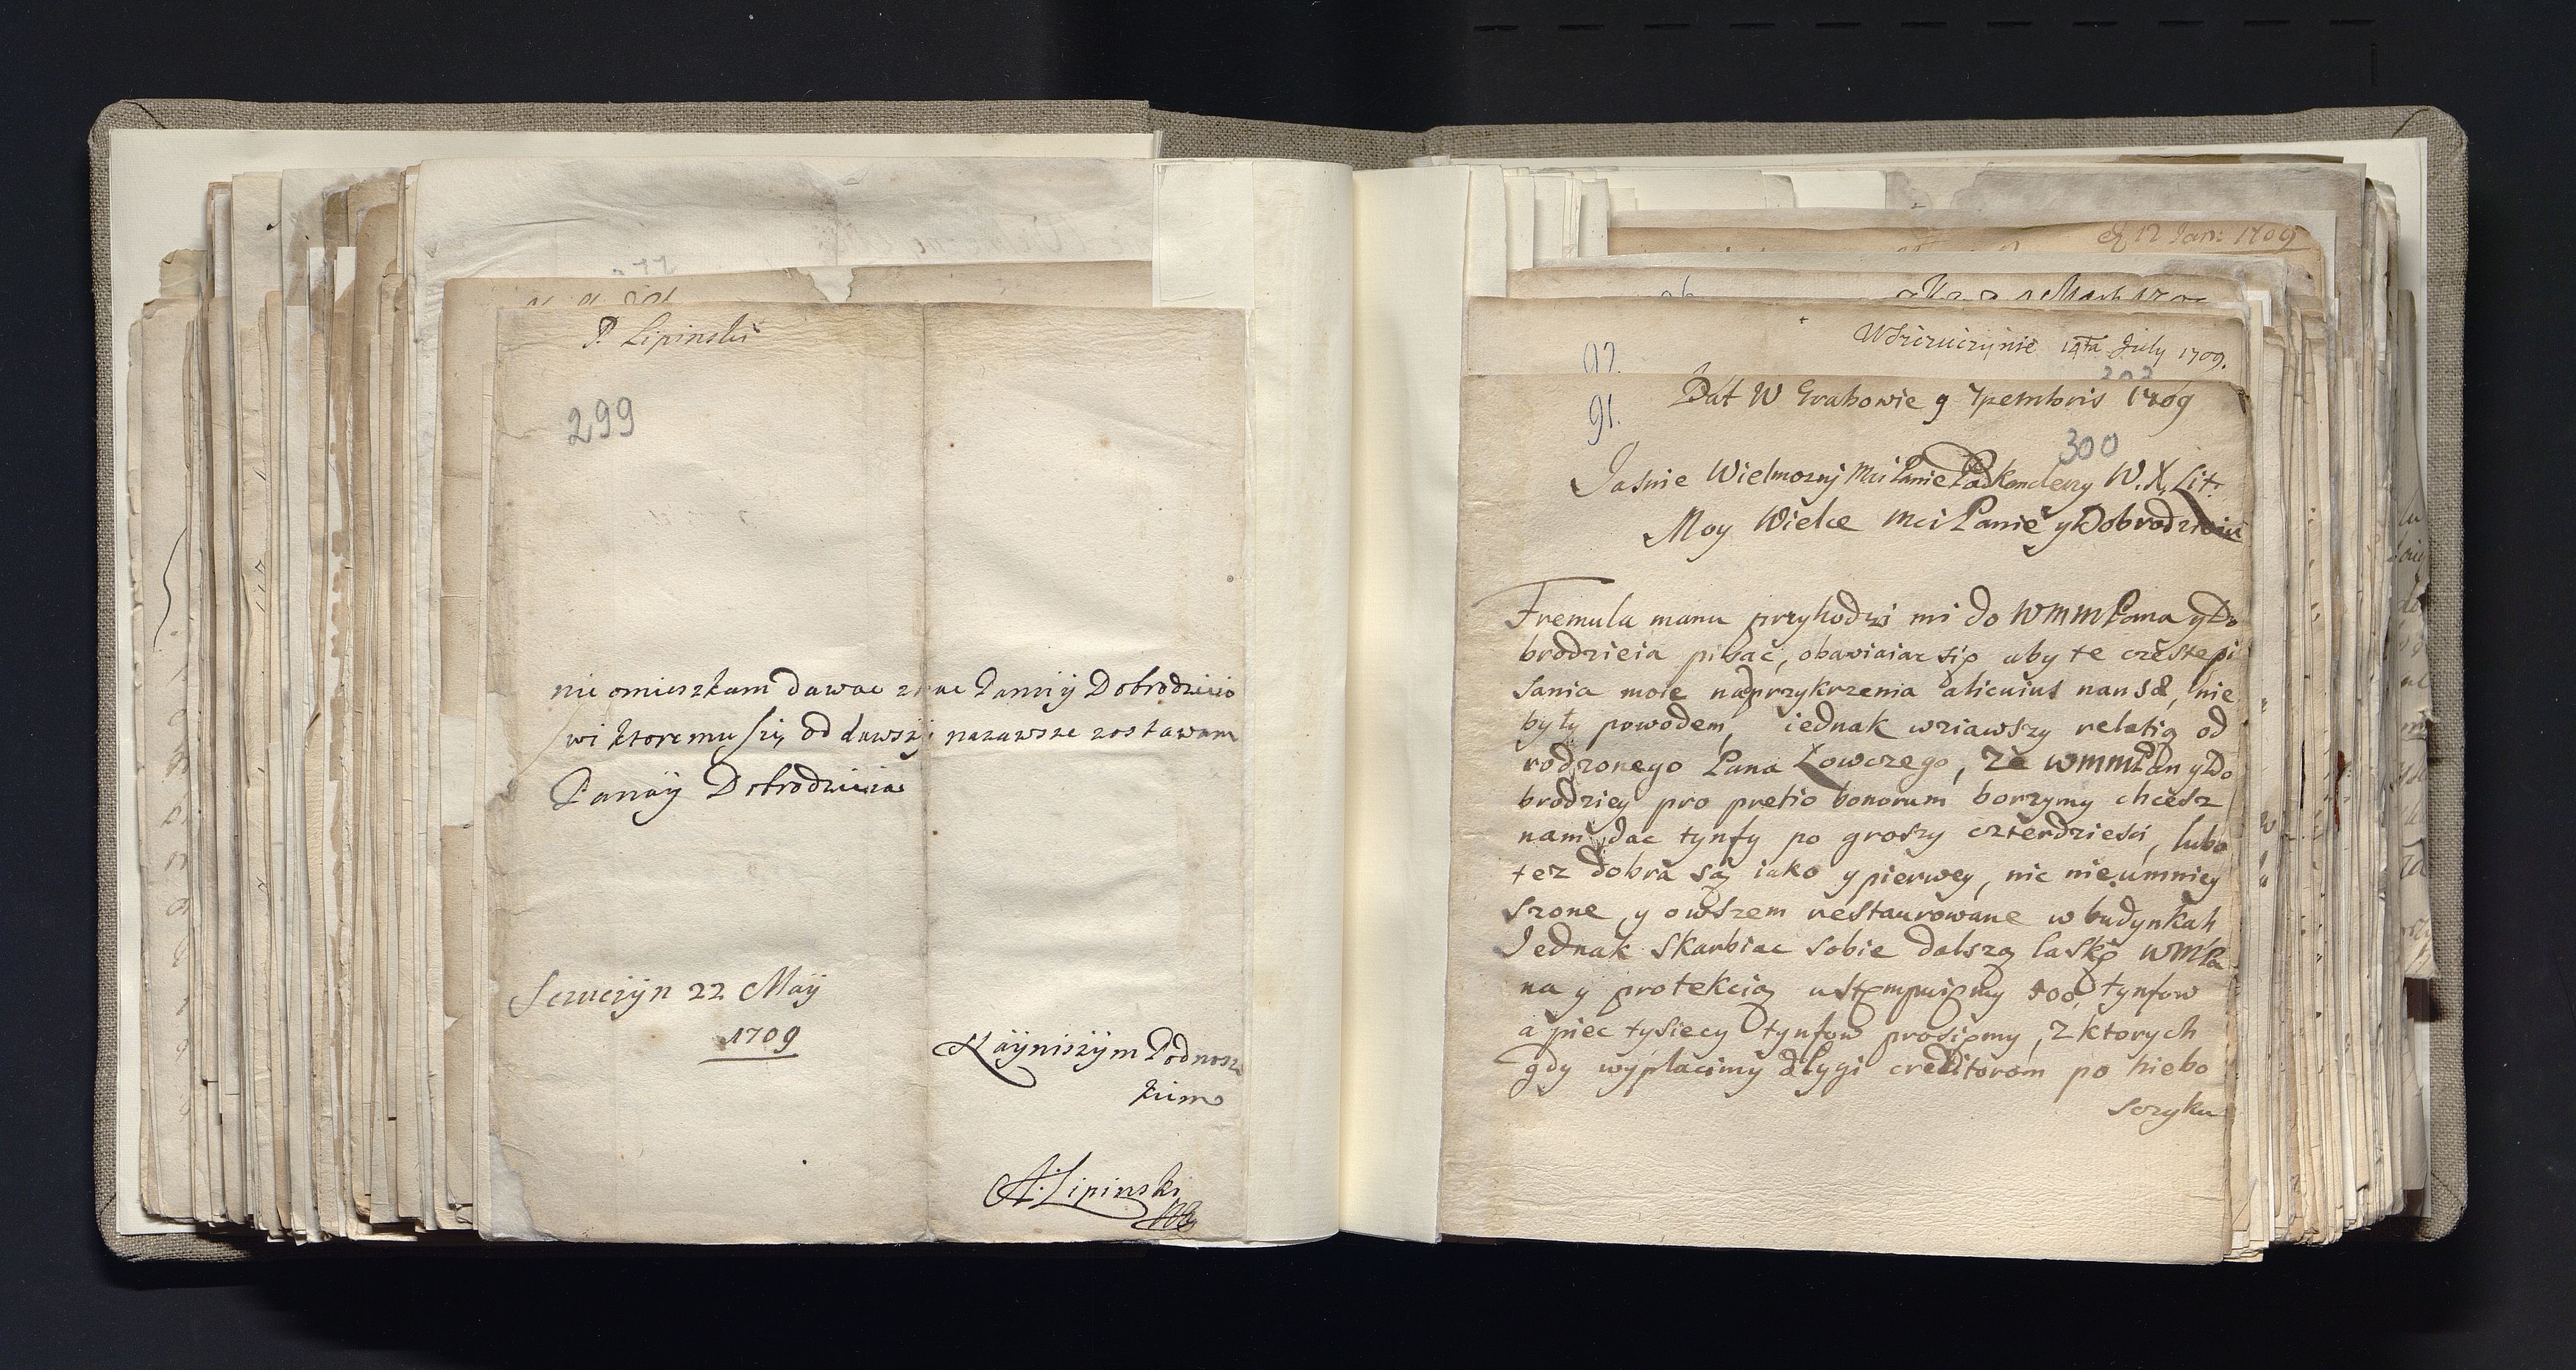 P. Lipinski
299
nie omieszkam dawac znac Panu y Dobrodzieio
wi ktoremu się oddawszy nazawsze zostawam
Panay Dobrodzieia
Szczuczyn 22 Maÿ
1709
Nayniszym Podnosz
kiem
A. Lipinski
12 Jan: 1709
Wszczuczynie 14ta July 1709.
92.
91.
Dat W Grabowie 9 7pembris 1709
300
Jasnie Wielmozny Mci Panie Podkanclerzy W. X. Lit.
Moy Wielce Mci Panie y Dobrodzieiu
Tremula manu przyhodzi mi do WMMPana y Do
brodzieia pisać, obawiaiac się aby te częstepi
sania moie naprzykrzenia alicuius nausæ, nie
były powodem, iednak wziawszy relatią od
rodzonego Pana Łowczego, Ze WMMPan y Do
brodziey pro pretio bonorum borzymy chcesz
nam dac tynfy po groszy czterdziesci, lubo
tez dobra są iako y pierwey, nic nie umniey
szone, y owszem restaurowane w budynkah
Jednak skarbiac sobie dalszą laskę WMPa
na y protekcią ustempuięmy 500 tynfow
a piec tysiecy tynfow prosięmy, z ktorych
gdy wyplacimy dlygi creditorom po niebo
szczyku